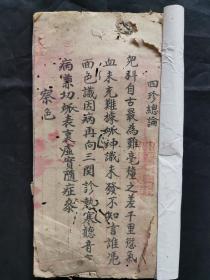 四珍總論
兒科自古最為難毫𨤲之差千里愆氣
血未充難據脉神識未發不知言誰凴
面色識因病再向三関診熱寒聽音
病藁切脉表裏虚實随症參
察色